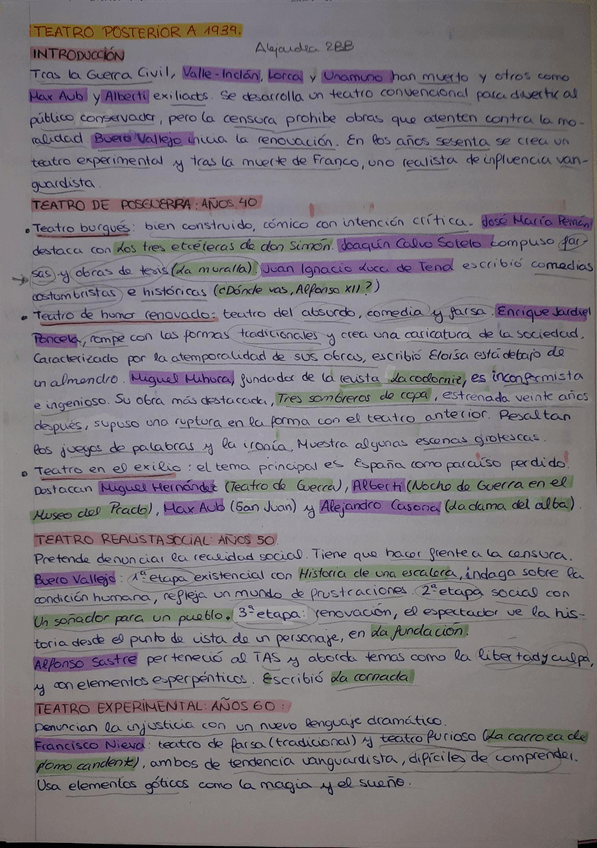 TEATRO POSTERIOR A 1939.
Alejandra 2BB
INTRODUCCIÓN
Tras la Guerra Civil, Valle-Inclán, Lorca y Unamuno han muerto y otros como
Max Aub y Alberti exiliados. Se desarrolla un teatro convencional para divertir al
público conservador, pero la censura prohibe obras que atenten contra la mo-
ralidad Buero Vallejo inicia la renovación. En los años sesenta se crea un
teatro experimental y tras la muerte de Franco, uno realista de influencia van-
guardista.
TEATRO DE POSGUERRA: AÑOS 40
• Teatro burgués: bien construido, cómico con intención crítica. José María Pemán
destaca con Los tres etcéteras de don Simón. Joaquín Calvo Sotelo compuso far-
sas y obras de tesis (La muralla) Juan Ignacio Luca de Tena escribió comedias
costumbristas e históricas (¿Dónde vas, Alfonso XII?)
• Teatro de humor renovado: teatro del absurdo, comedia y farsa. Enrique Jardiel
Poncela, rompe con las formas tradicionales y crea una caricatura de la sociedad.
Caracterizado por la atemporalidad de sus obras, escribió Eloísa está debajo de
un almendro. Miguel Mihura, fundador de la revista La codorniz, es inconformista
e ingenioso. Su obra más destacada, Tres sombreros de copa, estrenada veinte años
después, supuso una ruptura en la forma con el teatro anterior. Resaltan
los juegos de palabras y la ironía. Muestra algunas escenas grotescas.
• Teatro en el exilio: el tema principal es España como paraíso perdido.
Destacan Miguel Hernández (Teatro de Guerra), Alberti (Noche de Guerra en el
Museo del Prado), Max Aub (San Juan) y Alejandro Casona (La dama del alba).
TEATRO REALISTA SOCIAL: AÑOS 50
Pretende denunciar la realidad social. Tiene que hacer frente a la censura.
Buero Vallejo: 1ª etapa existencial con Historia de una escalera, indaga sobre la
condición humana, refleja un mundo de frustraciones. 2ª etapa social con
Un soñador para un pueblo. 3ª etapa: renovación, el espectador ve la his-
toria desde el punto de vista de un personaje, en La fundación.
Alfonso Sastre perteneció al TAS y aborda temas como la libertad y culpa,
y con elementos esperpénticos. Escribió La cornada
TEATRO EXPERIMENTAL: AÑOS 60:
Denuncian la injusticia con un nuevo lenguaje dramático.
Francisco Nieva: teatro de farsa (tradicional) y teatro furioso (La carroza de
plomo candente), ambos de tendencia vanguardista, difíciles de comprender.
Usa elementos góticos como la magia y el sueño.